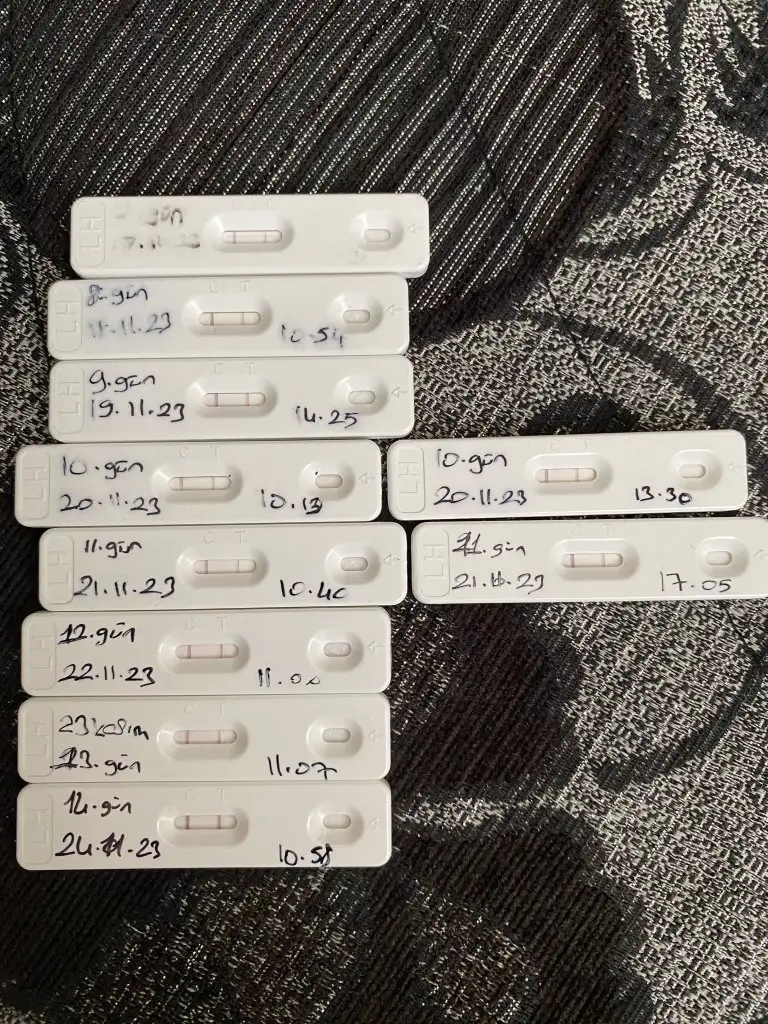 LH
C T
gün
LH
C T
8.gün
11.11.23
10.54
LH
C T
9.gün
19.11.23
14.25
LH
C T
10.gün
20.11.23
10.13
LH
C T
10.gün
20.11.23
13.30
LH
C T
11.gün
21.11.23
10.40
LH
11.gün
21.11.23
17.05
LH
C T
12.gün
22.11.23
11.00
LH
C T
23 kasım
13.gün
11.07
LH
C T
14.gün
24.11.23
10.58